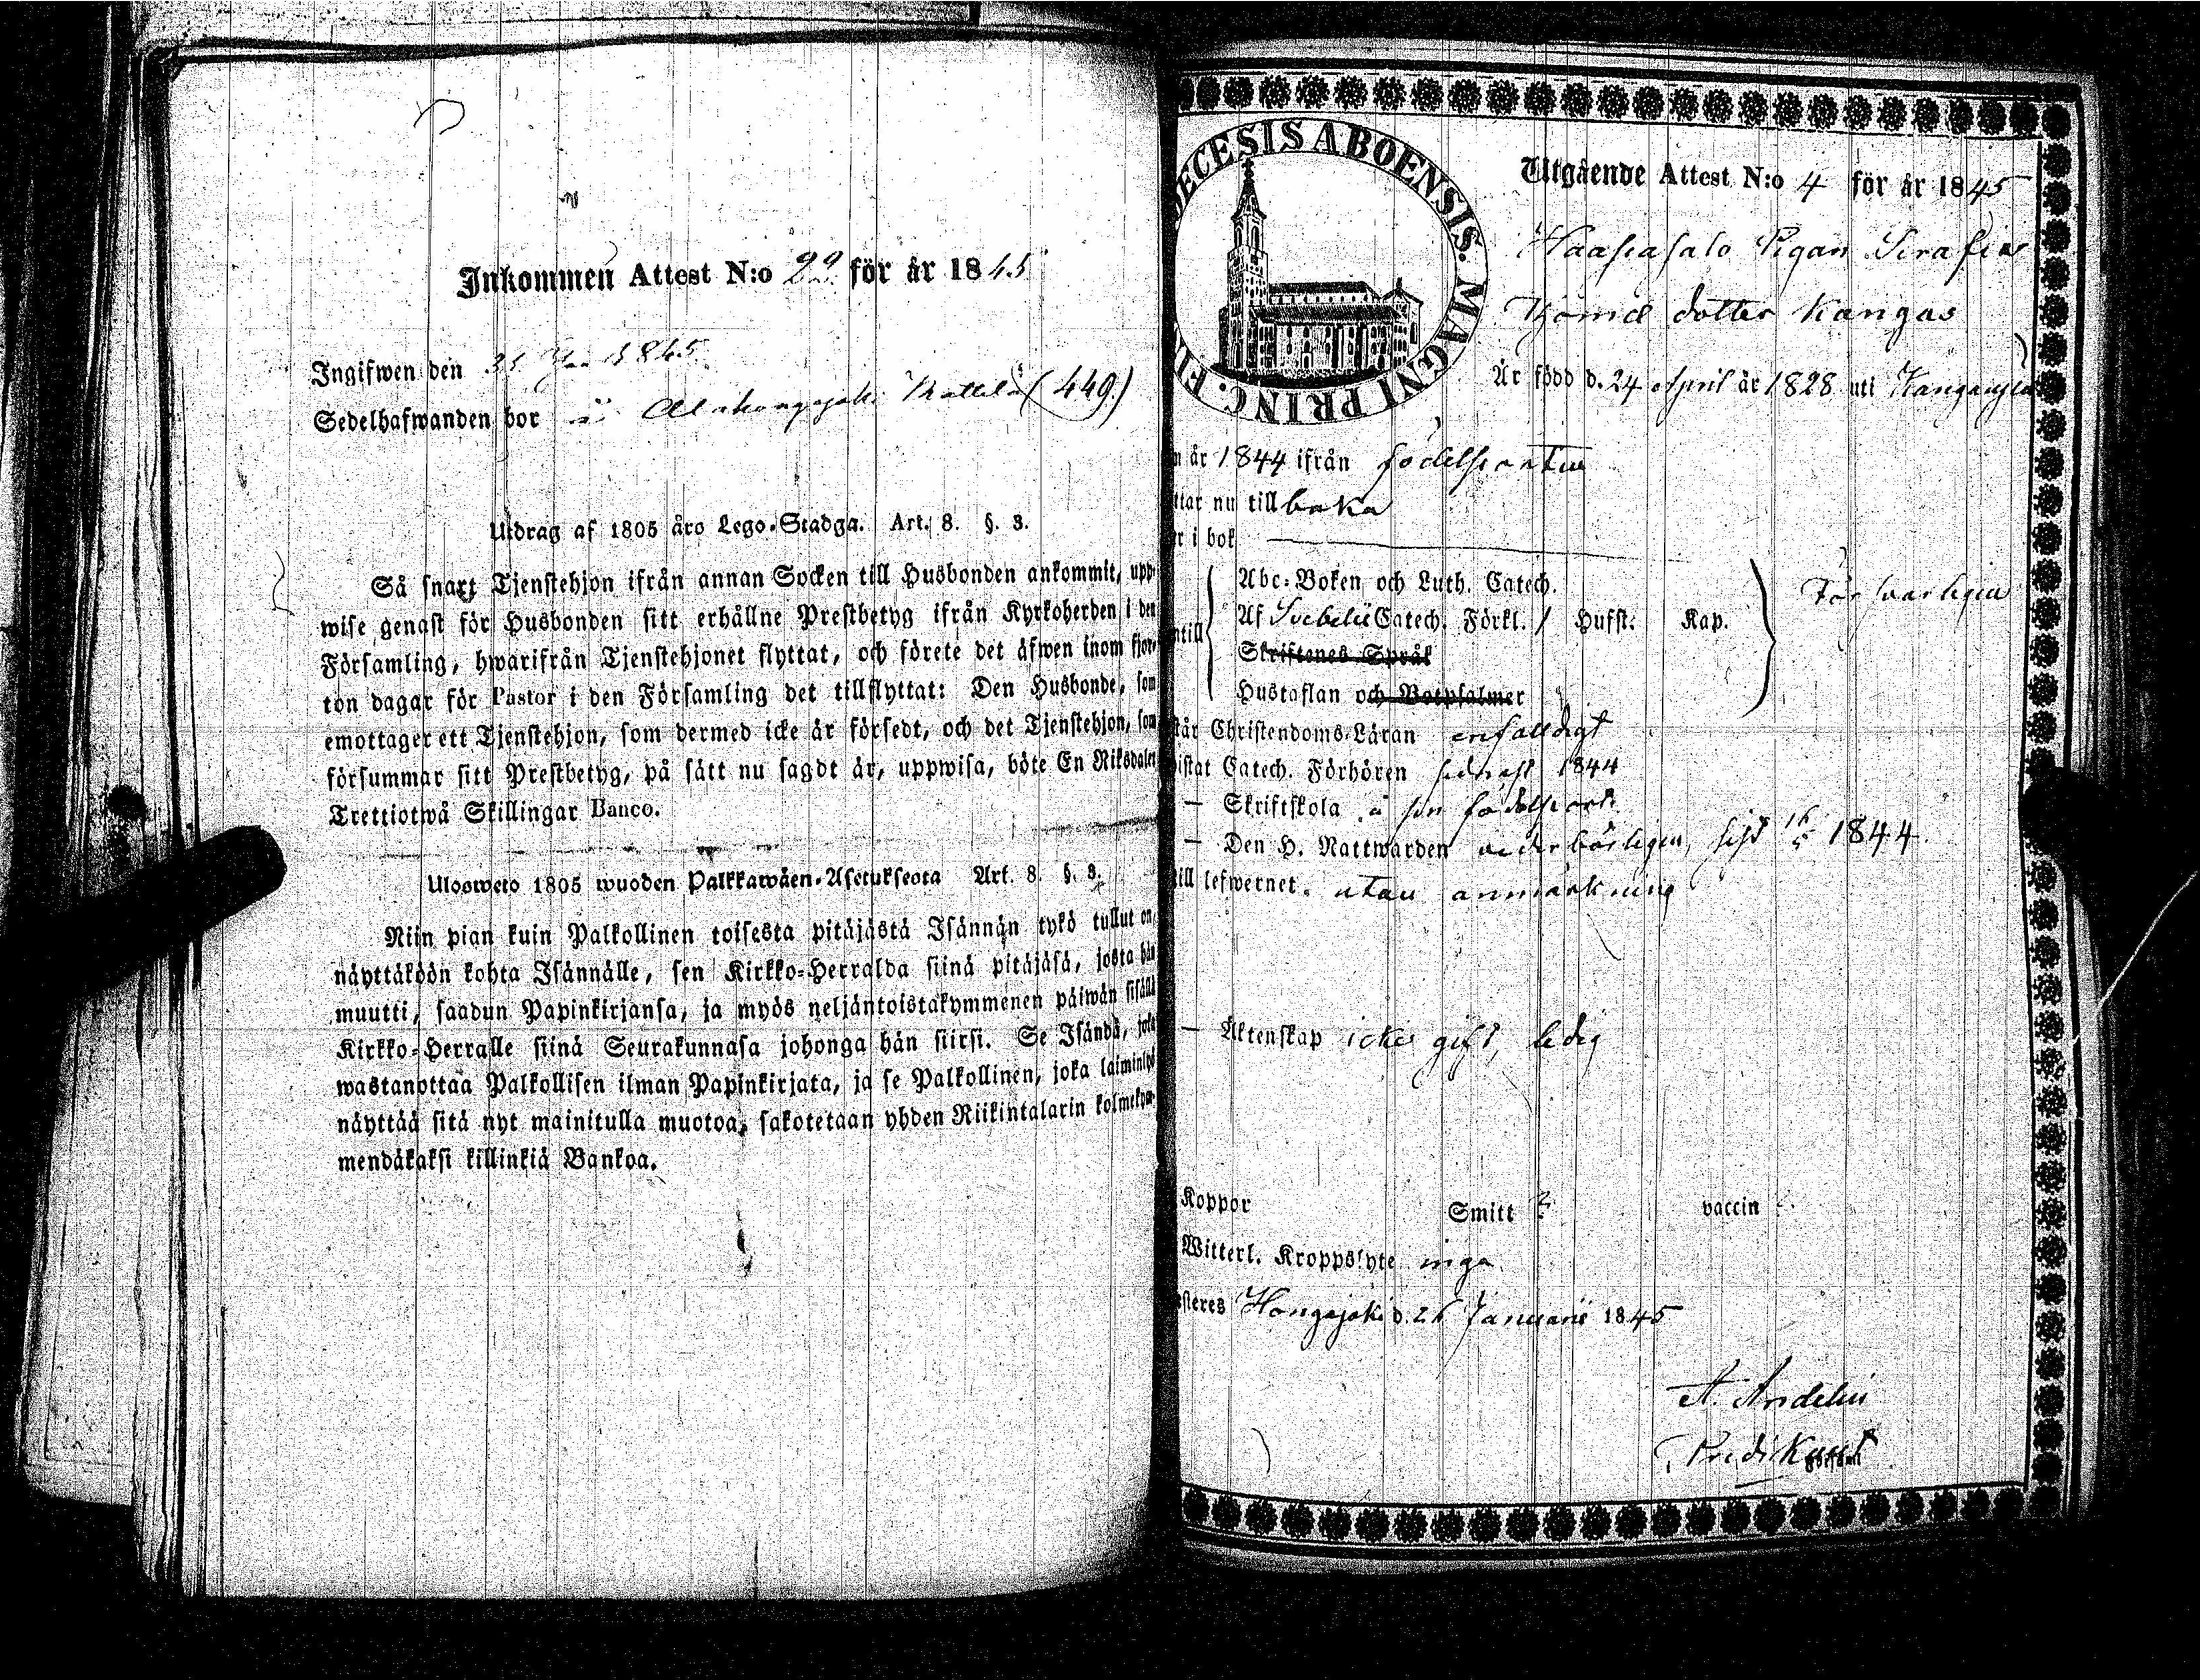 Inkommen Attest N:o 22 för år 1845
Ingifwen den 31 Jan 1845
Sedelhafwanden bor i Alahongajoki (449)
Utdrag af 1805 års Lego-Stadga. Art. 8. §. 3.
Så snart Tjenstehjon ifrån annan Socken till Husbonden ankommit, upp-
wise genast för Husbonden sitt erhållne Prestbetyg ifrån Kyrkoherden i den
Församling, hwarifrån Tjenstehjonet flyttat, och förete det äfwen inom fjor-
ton dagar för Pastor i den Församling det tillflyttat: Den Husbonde, som
emottager ett Tjenstehjon, som dermed icke är försedt, och det Tjenstehjon, som
försummar sitt Prestbetyg, på sätt nu sagdt är, uppwisa, böte En Riksdaler
Trettiotwå Skillingar Banco.
Ulosweto 1805 wuoden Palkkawäen-Asetuksesta Art. 8. §. 3.
Niin pian kuin Palkollinen toisesta pitäjästä Isännän tykö tullut on,
näyttäköön kohta Isännälle, sen Kirkko-Herralda siinä pitäjäsä, josta hän
muutti, saadun Papinkirjansa, ja myös neljäntoistakymmenen päiwän sisällä
Kirkko-Herralle siinä Seurakunnasa johonga hän siirsi. Se Isändä, joka
wastanottaa Palkollisen ilman Papinkirjata, ja se Palkollinen, joka laiminlyö
näyttää sitä nyt mainitulla muotoa, sakotetaan yhden Riikintalarin kolmekym-
mendäkaksi killinkiä Bankoa.
ECESIS ABOENSIS. MAGNI PRINC. FI
Utgående Attest N:o 4 för år 1845
Haapasalo Pigan Serafia
Thomæ dotter Kangas
Är född d. 24 April år 1828 uti Kangan
n år 1844 ifrån födelseorten
ttar nu tillbaka
r i bok
ntill
Abc-Boken och Luth. Catech.
Af Svebelii Catech. Förkl. / Hufst. Kap.
Skriftenes Språk
Hustaflan och Botpsalmer
Försvarligen
står Christendoms-Läran enfaldigt
istat Catech. Förhören sednast 1844
— Skriftskola å sin födelseort
— Den H. Nattwarden vederbörligen, sist 16/5 1844
till lefwernet utan anmärkning
— Äktenskap icke gift, ledig
Koppor Smitt ? vaccin
Witterl. Kroppslyte inga
steres Hongajoki d. 26 Januarii 1845
A. Andelin
Predikant